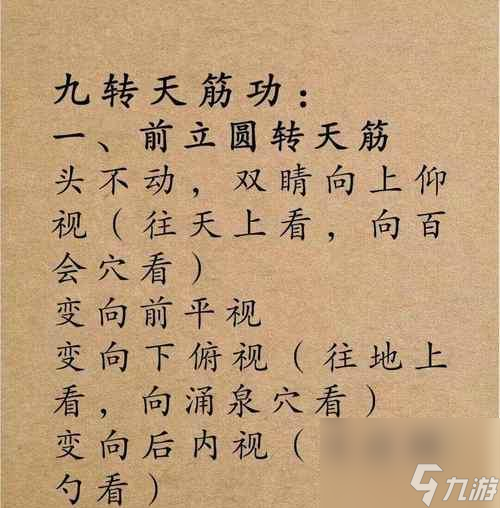 九转天筋功：
一、前立圆转天筋
头不动，双睛向上仰
视（往天上看，向百
会穴看）
变向前平视
变向下俯视（往地上
看，向涌泉穴看）
变向后内视（
勺看）
九游